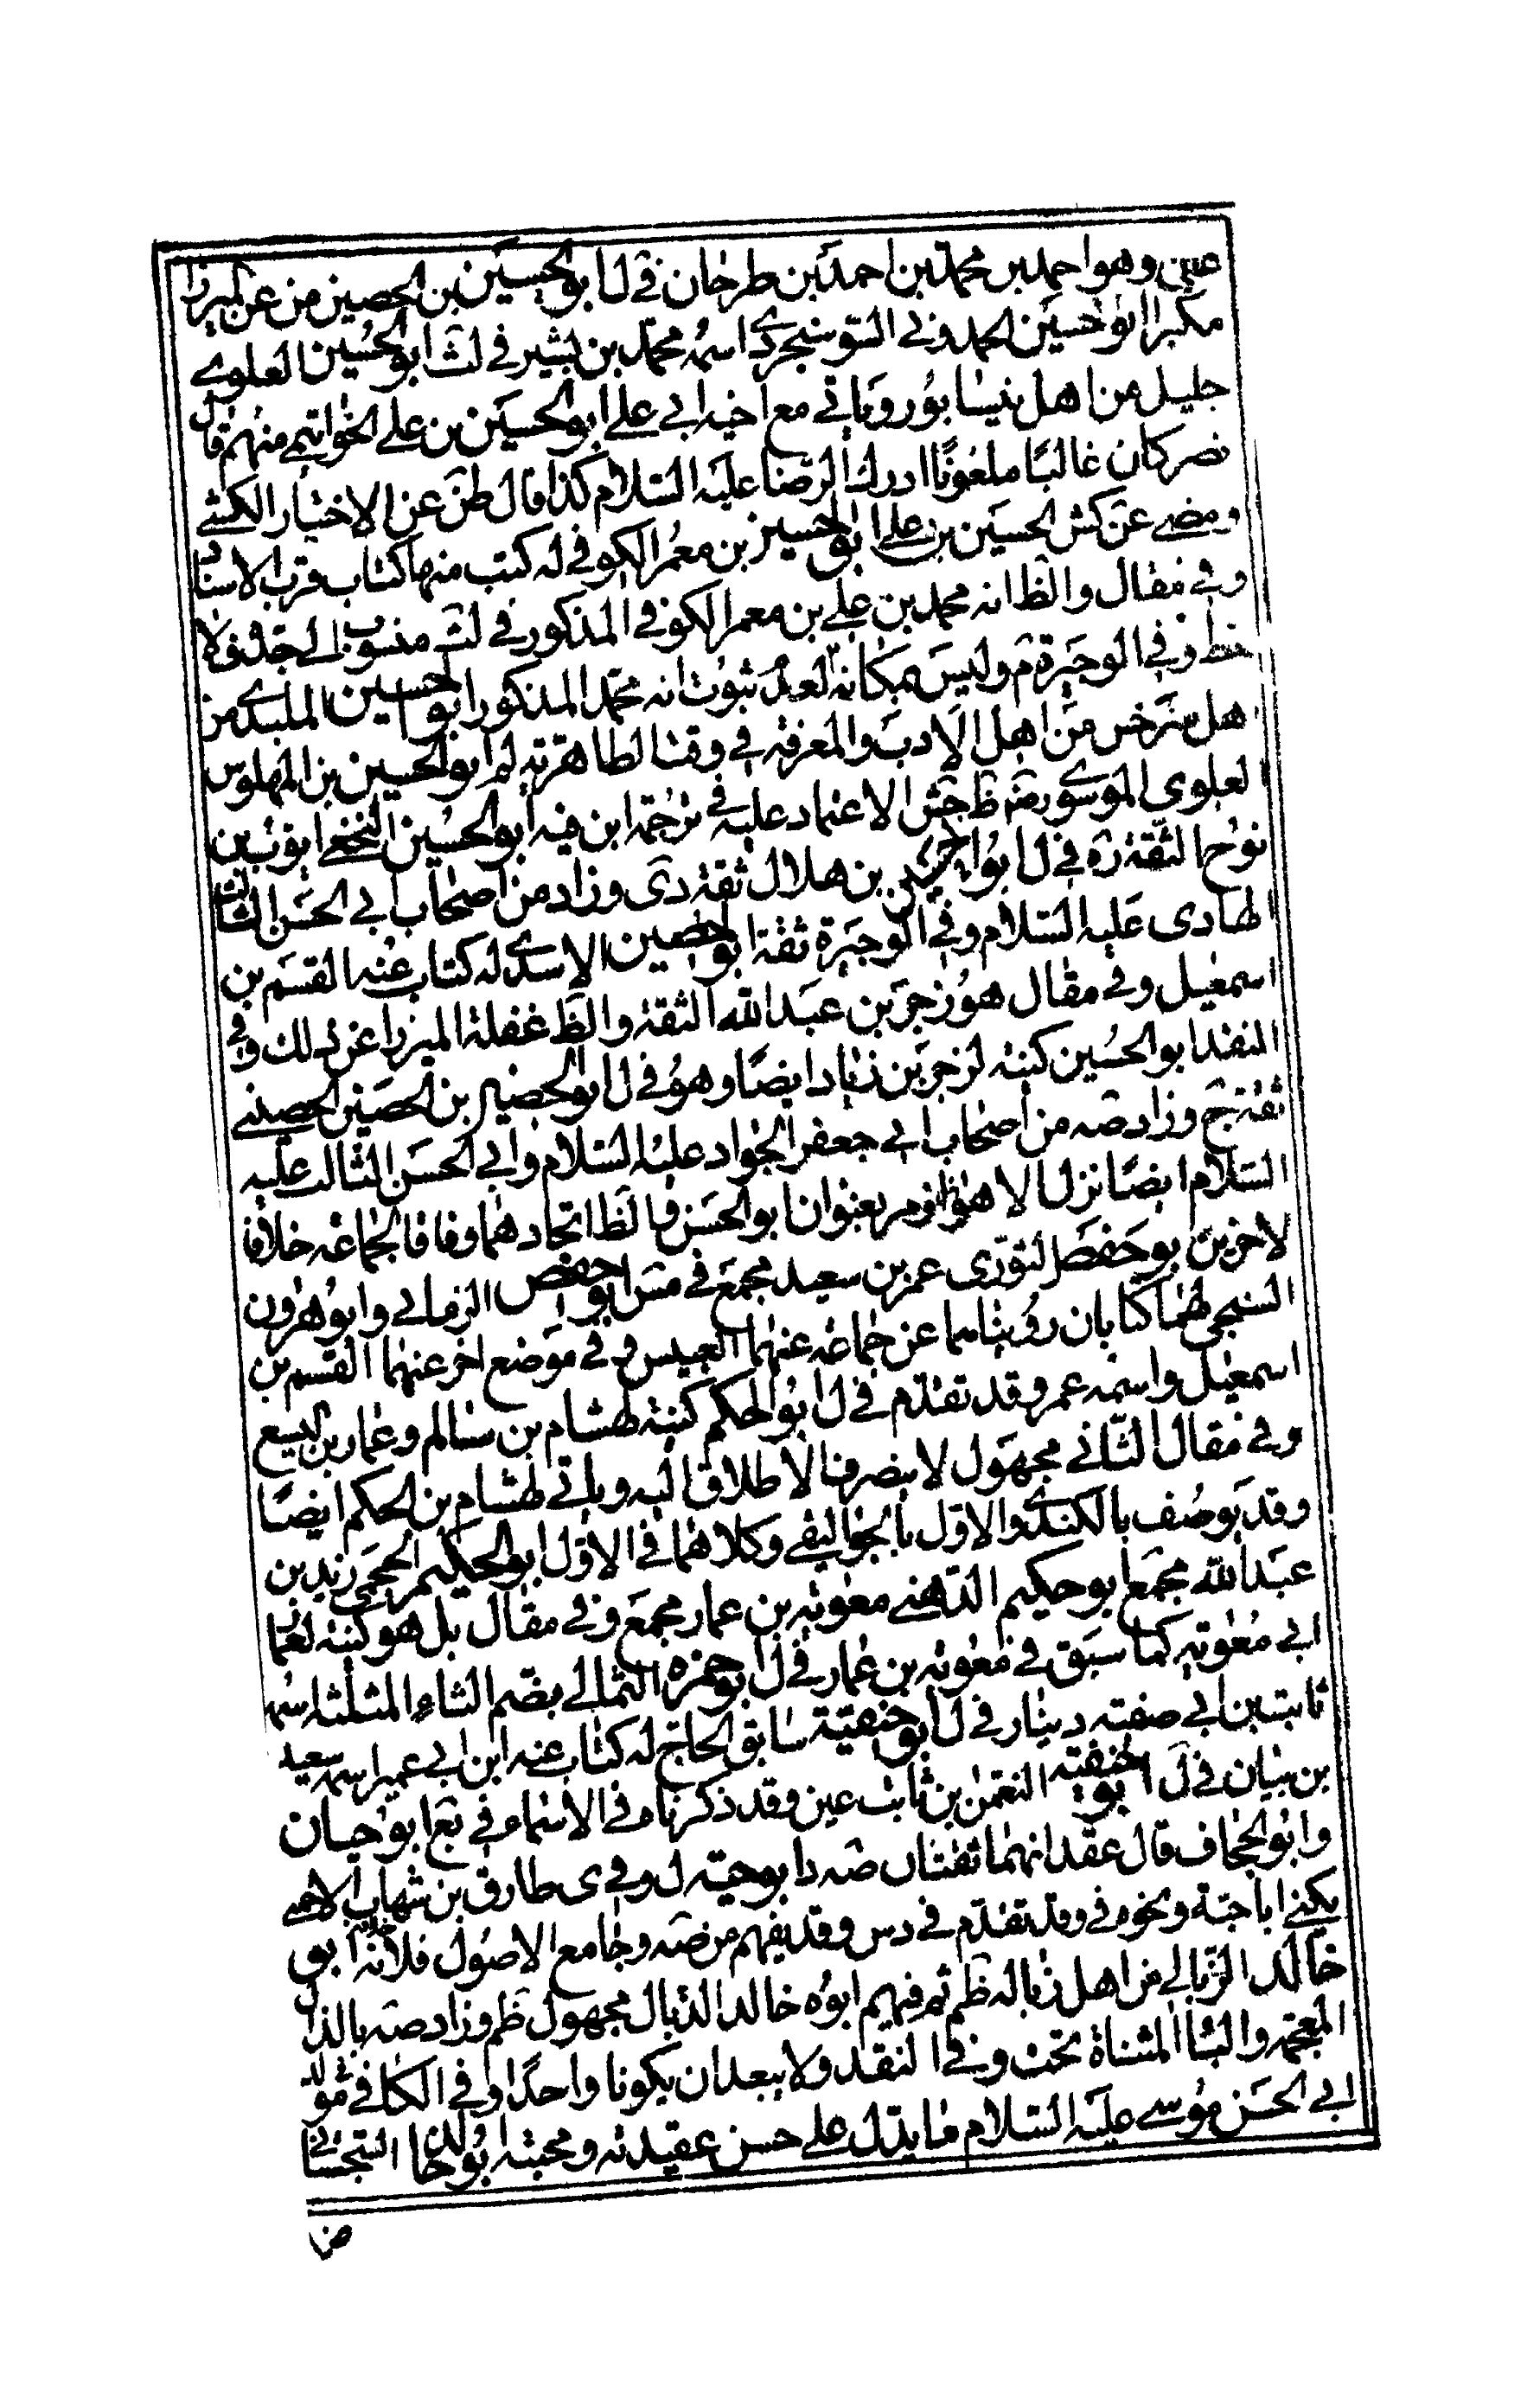 عيسى وهو احمد بن محمد بن احمد بن طرخان في ل ابو الحسين بن الحصين من عن الميرزا
مكبرا ابو حسين الحمدوني السوسنجردي اسمه محمد بن بشير في لث ابو الحسين العلوي
جليل من اهل نيسابور وياتي مع اخيه ابي علي ابو الحسين بن علي الخواتيمي منهم قال
نصر كان غالبا ملعونا ادرك الرضا عليه السلام كذا قال طن عن الاختيار الكشي
ومضى عن كش الحسين بن علي ابو الحسين بن معمر الكوفي له كتب منها كتاب قرب الاسناد
وفي مقال والظ انه محمد بن علي بن معمر الكوفي المذكور في لث منسوب الى جده فلا
وفي الوجيزة م وليس بمكانه لعدم ثبوت انه محمد المذكور ابو الحسين الملبدي من
اهل سرخس من اهل الادب والمعرفة في وقت الطاهرية لم ابو الحسين بن المهلوس
العلوي الموسوي رضه ظ جش الاعتماد عليه في ترجمة ابن فيه ابو الحسين النخعي ايوب بن
نوح الثقة ره في ل ابو الحسين بن هلال ثقة دي وزاد من اصحاب ابي الحسن الثالث
الهادى عليه السلام وفي الوجيزة ثقة ابو الحصين الاسدي له كتاب عنه القسم بن
اسمعيل وفي مقال هو زحر بن عبد الله الثقة والظ غفلة الميرزا عن ذلك وفي
النقد ابو الحسين كنية لزحر بن زياد ايضا وهو في ل ابو الحصين بن الحصين الحصيني
ثقة ج وزاد صه من اصحاب ابي جعفر الجواد عليه السلام وابي الحسن الثالث عليه
السلام ايضا نزل الاهواز ومر بعنوان ابو الحسن فالظ اتحادهما وفاقا لجماعة خلافا
لاخرين ابو حفص الثوري عمر بن سعيد مجمع في مش ابو حفص الرماني وابو هرون
السنجي لهما كتابان رويناهما عن جماعة عنهما العبيس في موضع اخر عنهما القسم بن
اسمعيل واسمه عمر وقد تقدم في ل ابو الحكم كنية لهشام بن سالم وعمار بن اليسع
وفي مقال الثاني مجهول لا ينصرف الاطلاق اليه وياتي لهشام بن الحكم ايضا
وقد يوصف بالكندي والاول بالجواليقي وكلاهما في الاول ابو الحكيم الجمحي زيد بن
عبد الله مجمع ابو حكيم الدهني معوية بن عمار مجمع وفي مقال بل هو كنية لعمار
ابي معوية كما سبق في معوية بن عمار في ل ابو حمزه الثمالي بضم الثاء المثلثة اسمه
ثابت بن ابي صفية دينار في ل ابو حنيفة سابق الحاج له كتاب عنه ابن ابي عمير اسمه سعيد
بن بيان في ل ابو حنيفة النعمن بن ثابت عين وقد ذكرناه في الاسماء في بع ابو حيان
وابو الجحاف قال عقد انهما ثقتان صه د ابو حية ل وفي ى طارق بن شهاب الاحمسي
يكنى ابا حية ونحوه في وقد تقدم في دس وقد يفهم من صه وجامع الاصول فلانه ابو
خالد الزبالي من اهل زباله ظم ثم فيهم ابوه خالد الذيال مجهول ظم وزاد صه بالذال
المعجمة والياء المثناة تحت وفي النقد ولا يبعد ان يكونا واحدا وفي الكافي في مولد
ابي الحسن موسى عليه السلام ما يدل على حسن عقيدته ومحبته ابو خالد السجستاني